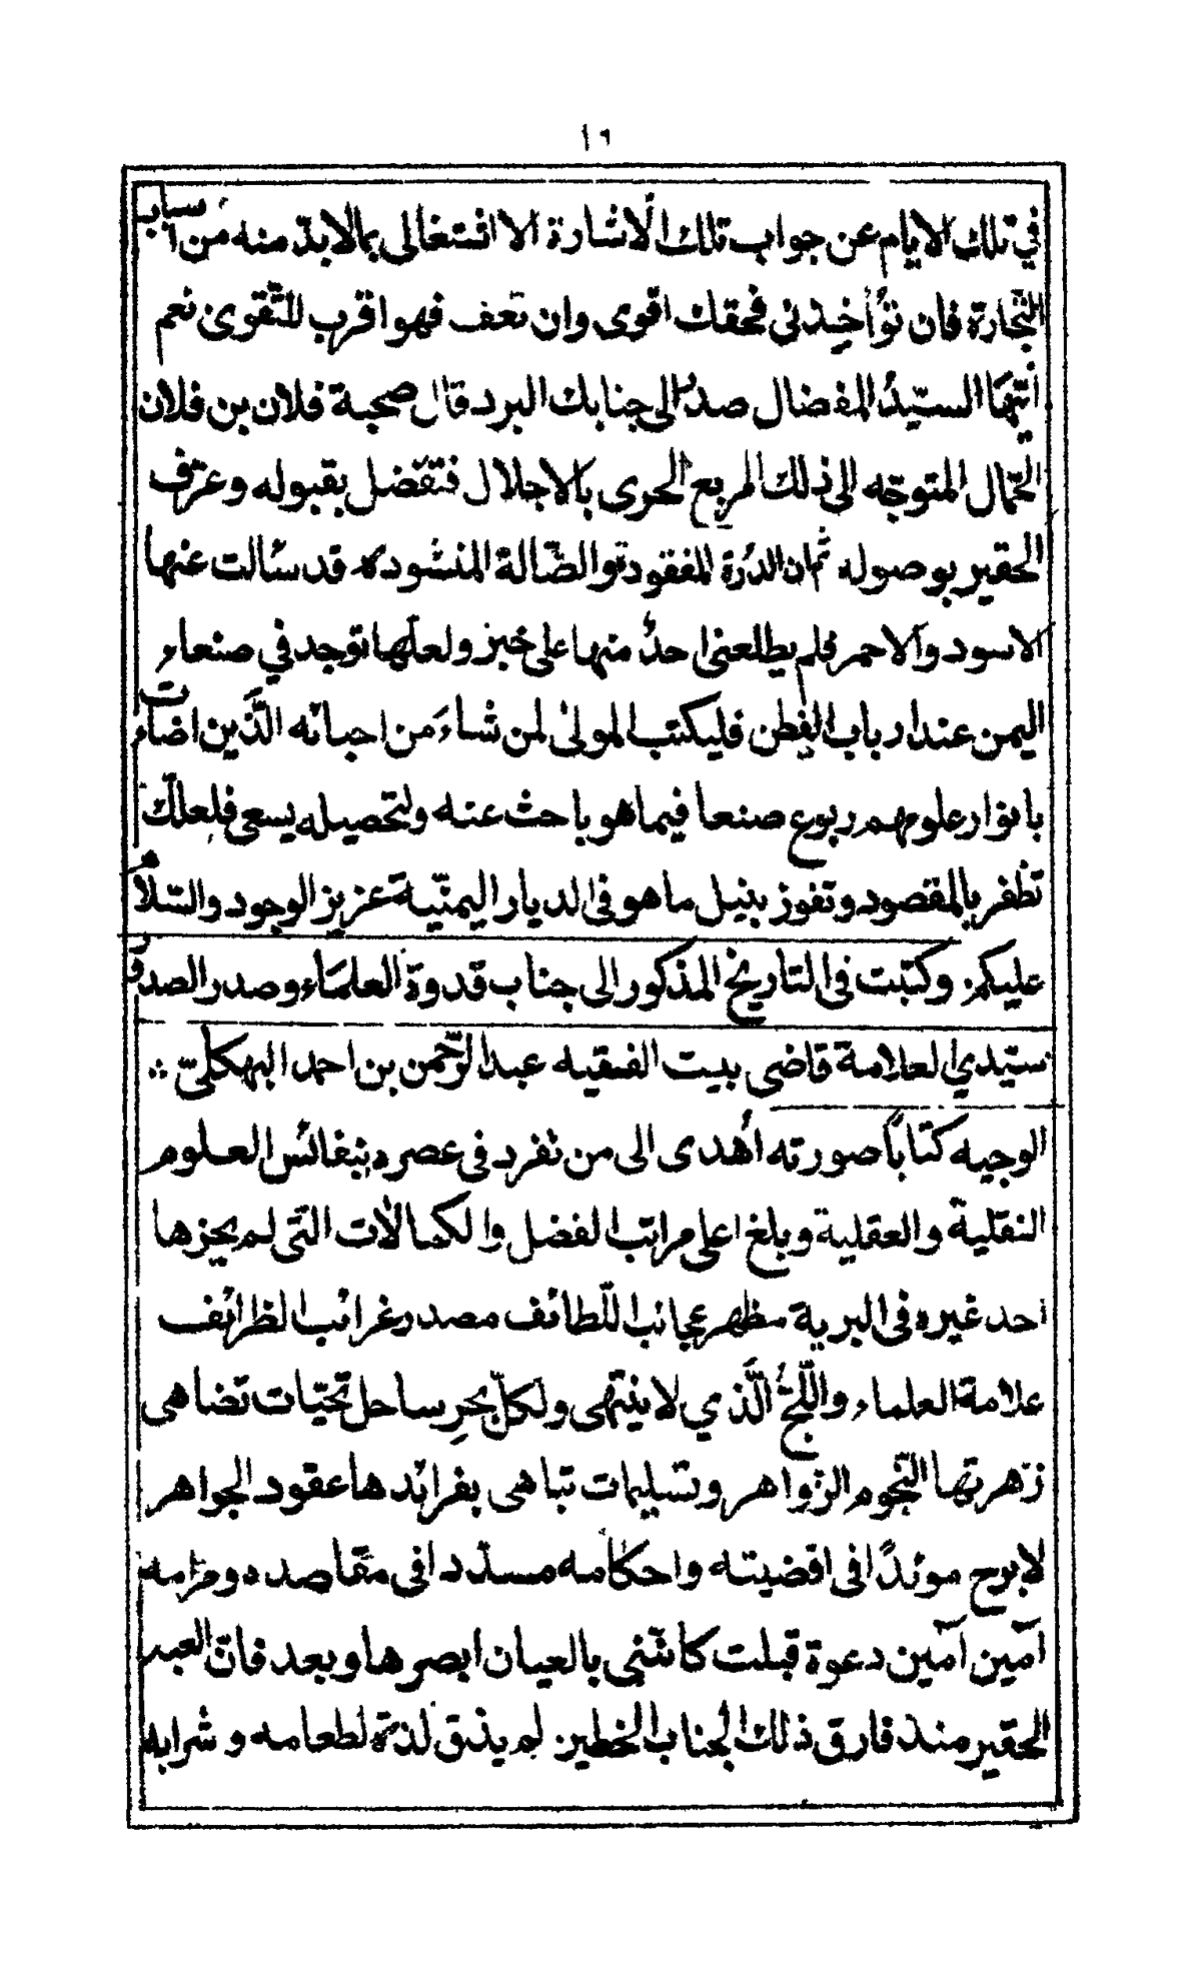 ١٦
في تلك الايام عن جواب تلك الاشارة الا اشتغالى بمالابدّ منه من اسباب
التّجارة فان تؤاخِذنى فحقك اقوى وان تعف فهو اقرب للتّقوىٰ نعم
أيّهَا السيّدُ المفضال صدر الى جنابك البرد قال صحبة فلان بن فلان
الحمّال المتوجّه الى ذلك المربع الحرى بالاجلال فتفضل بقبوله وعرّف
الحقير بوصوله ثم ان الدرة المفقودة والضّالة المنشوده قد سئالت عنها
الاسود والاحمر فلم يطلعنى احدٌ منها على خبر ولعلّها توجد في صنعاء
اليمن عند ارباب الفطن فليكتب المولىٰ لمن شاءَ من احبائه الّذين اضاءت
بانوار علومهم ربوع صنعا فيما هو باحث عنه ولتحصيله يسعى فلعلّك
تظفر بالمقصود وتفوز بنيل ما هو فى الديار اليمنّية عزيز الوجود والسّلام
عليكم. وكتبت فى التاريخ المذكور الى جناب قدوة العلمَاء وصدر الصدور
سيّدي العلامة قاضى بيت الفقيه عبد الرّحمن بن احمد البهكلىّ ∴
الوجيه كتابًا صورته اُهدى الى من تفرد فى عصره بنفائس العلوم
النقلية والعقلية وبلغ اعلى مراتب الفضل والكمالات التّى لم يحزها
احد غيره فى البرية مظهر عجائب اللّطائف مصدر غرائب الظرائف
علامة العلماء واللّجُّ الّذي لا ينتهى ولكلّ بحرٍ ساحل تحيّات تضاهى
زهرتها النّجوم الزّواهر وتسليمات تباهى بفرائدها عقود الجواهر
لا برح موئدًا فى اقضيته واحكامه مسدّدا فى مقاصده ومرامه
آمين آمين دعوة قبلت كأنّنى بالعيان ابصرها وبعد فانّ العبد
الحقير منذ فارق ذلك الجناب الخطير لم يذق لذة لطعامه وشرابه